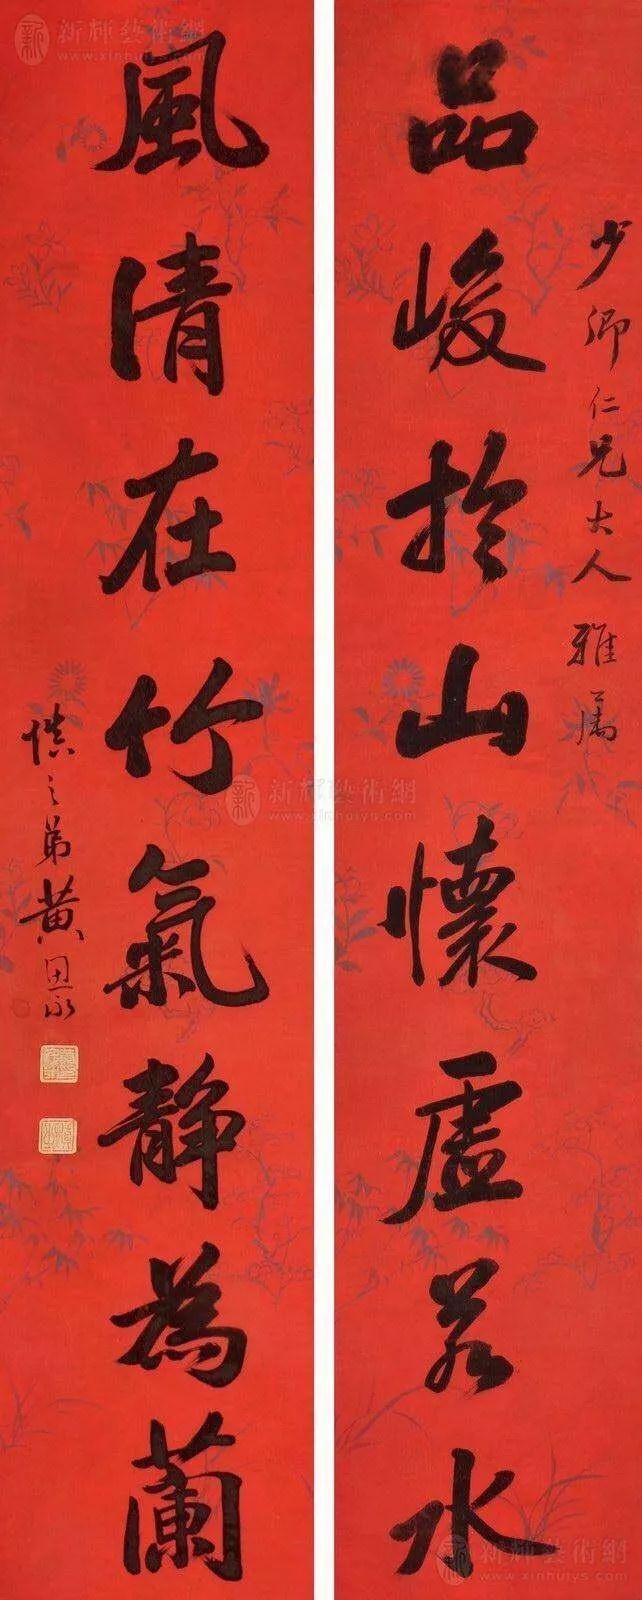 少卿仁兄大人雅属
品峻於山懷虛若水
風清在竹氣靜為蘭
慎之弟黄思永
新輝藝術網
www.xinhuiys.com
新輝藝術網
www.xinhuiys.com
新輝藝術網
www.xinhuiys.com